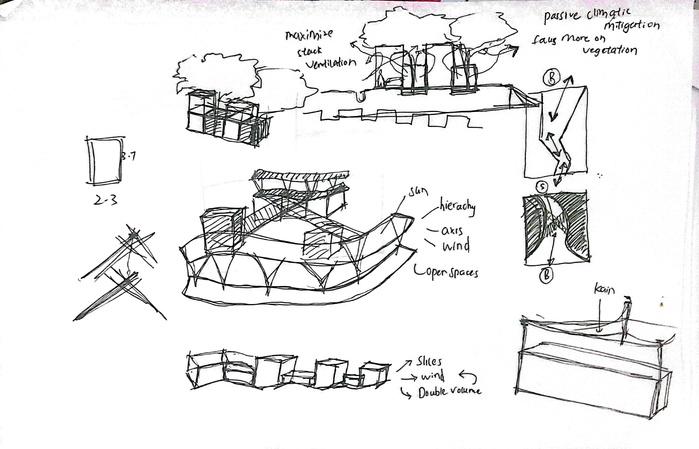 maximize
stack
ventilation
passive climatic
mitigation
focus more on
vegetation
B
3.7
2.3
S
B
sun
hierachy
axis
wind
open spaces
kain
slices
wind
Double volume